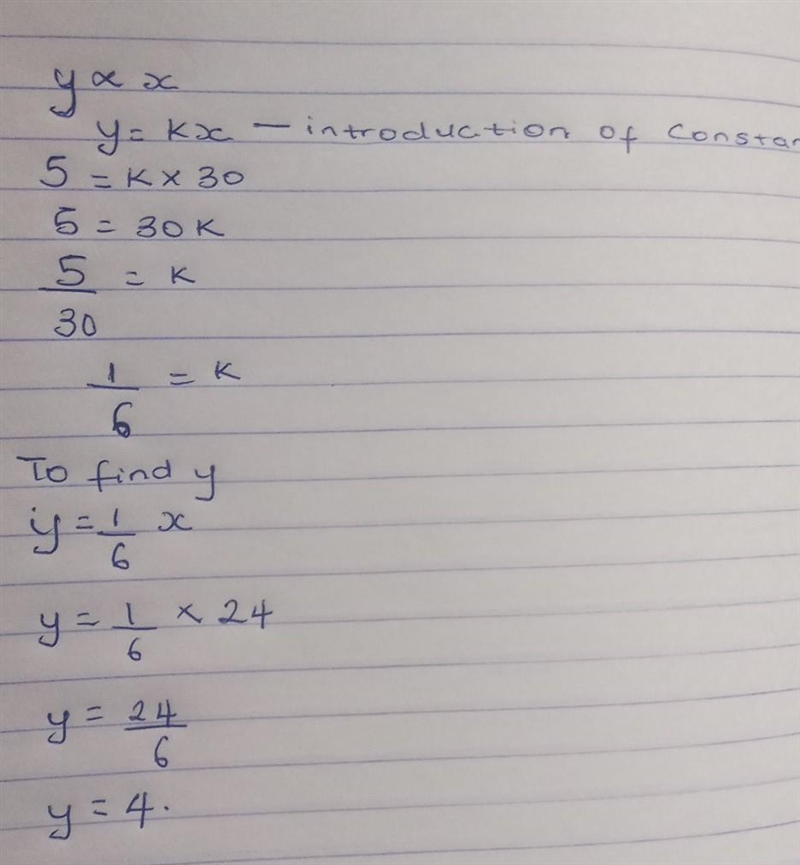 y ∝ x
y = kx – introduction of
5 = k × 30
5 = 30k
5/30 = k
1/6 = k
To find y
y = 1/6 x
y = 1/6 × 24
y = 24/6
y = 4.